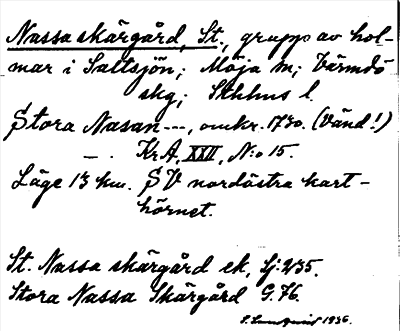 Nassa skärgård, St., grupp av hol-
mar i Saltsjön; Möja sn; Värmdö
skg; Sthlms l.
Stora Nasan ---, omkr. 1730. (Vänd!)
— . — KrA, XXII, N:o 15.
Läge 13 km. SV nordöstra kart-
hörnet.
St. Nassa skärgård ek, Sj: 235.
Stora Nassa Skärgård G. 76.
1936.